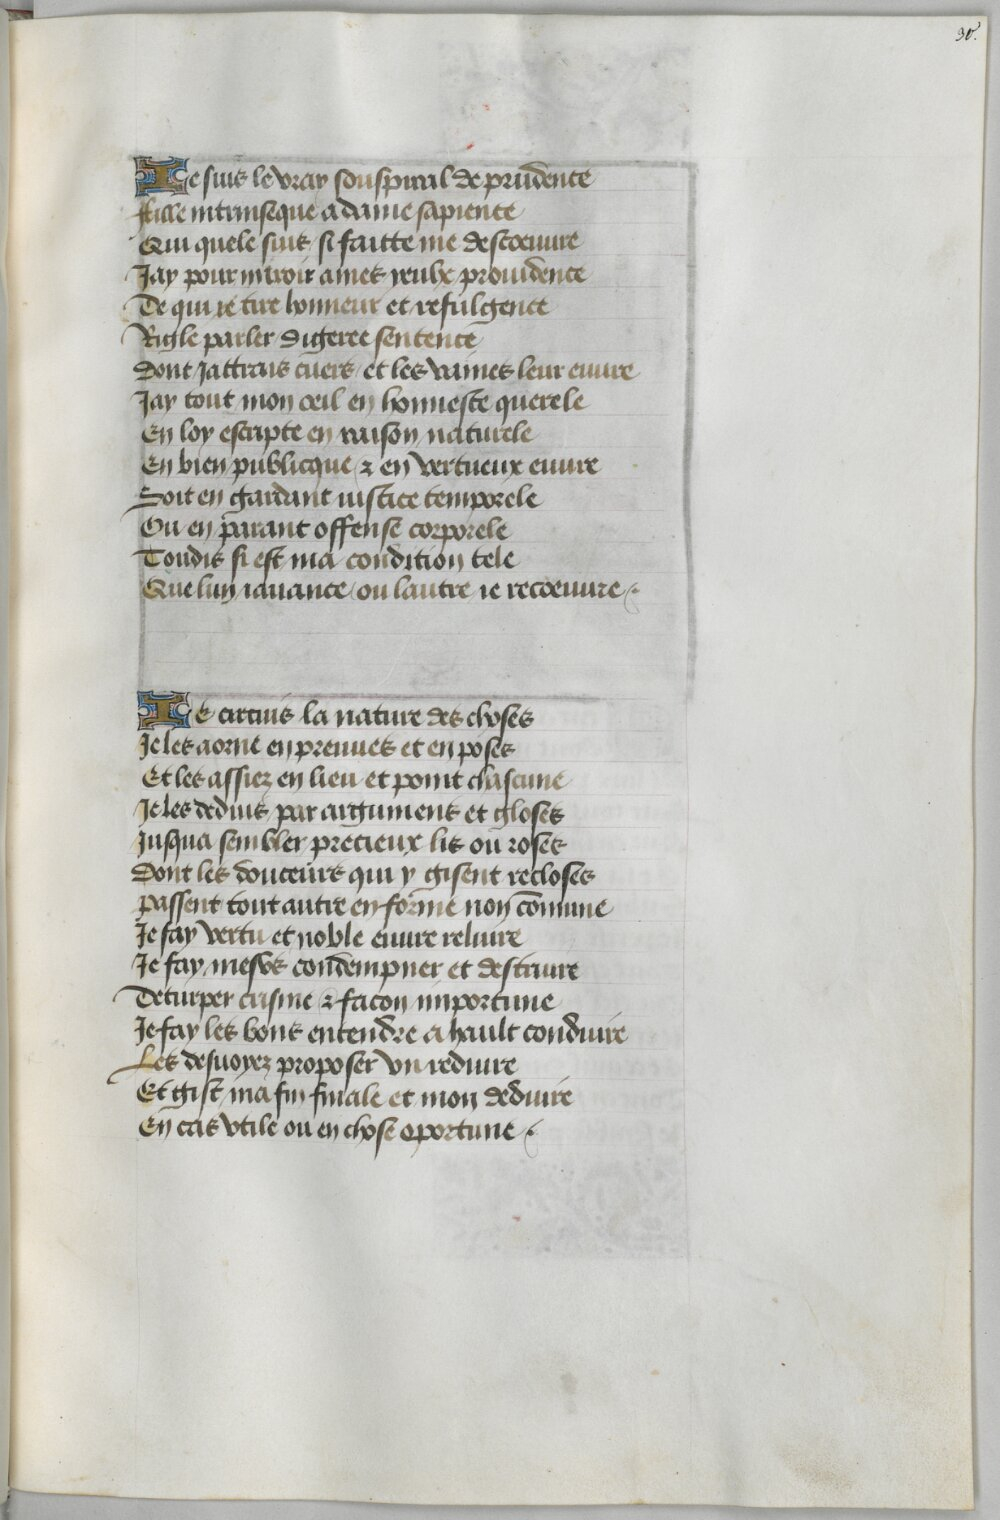 30.
Je suis le vray souspiral de prudence
Fille intrinseque a dame sapience
Qui quele suis si faitte me descoeuure
Jay pour miroir a mes yeulx prouidence
De qui je tire honneur et refulgence
Rigle parler digeree sentence
Dont jattrais cuers et les raimes leur euure
Jay tout mon oeil en honneste querele
En loy escripte en raison naturele
En bien publicque & en vertueux euure
Soit en gardant iustice temporele
Ou en parant offense corporele
Toudis si est ma condition tele
Que lun iauance ou lautre ie recoeuure
Je circuis la nature des choses
Je les aorne en preuues et en poses
Et les assiez en lieu et point chascune
Je les deduis par argumens et gloses
Jusqua sembler precieux lis ou roses
Dont les douceurs qui y gisent recloses
Passent tout autre en forme non comune
Je fay vertu et noble euure reluire
Je fay mesus condempner et destruire
Deturper crisme & facon importune
Je fay les bons entendre a hault conduire
Les desuoyez proposer vn reduire
Et gist ma fin finale et mon deduire
En cas vtile ou en chose oportune